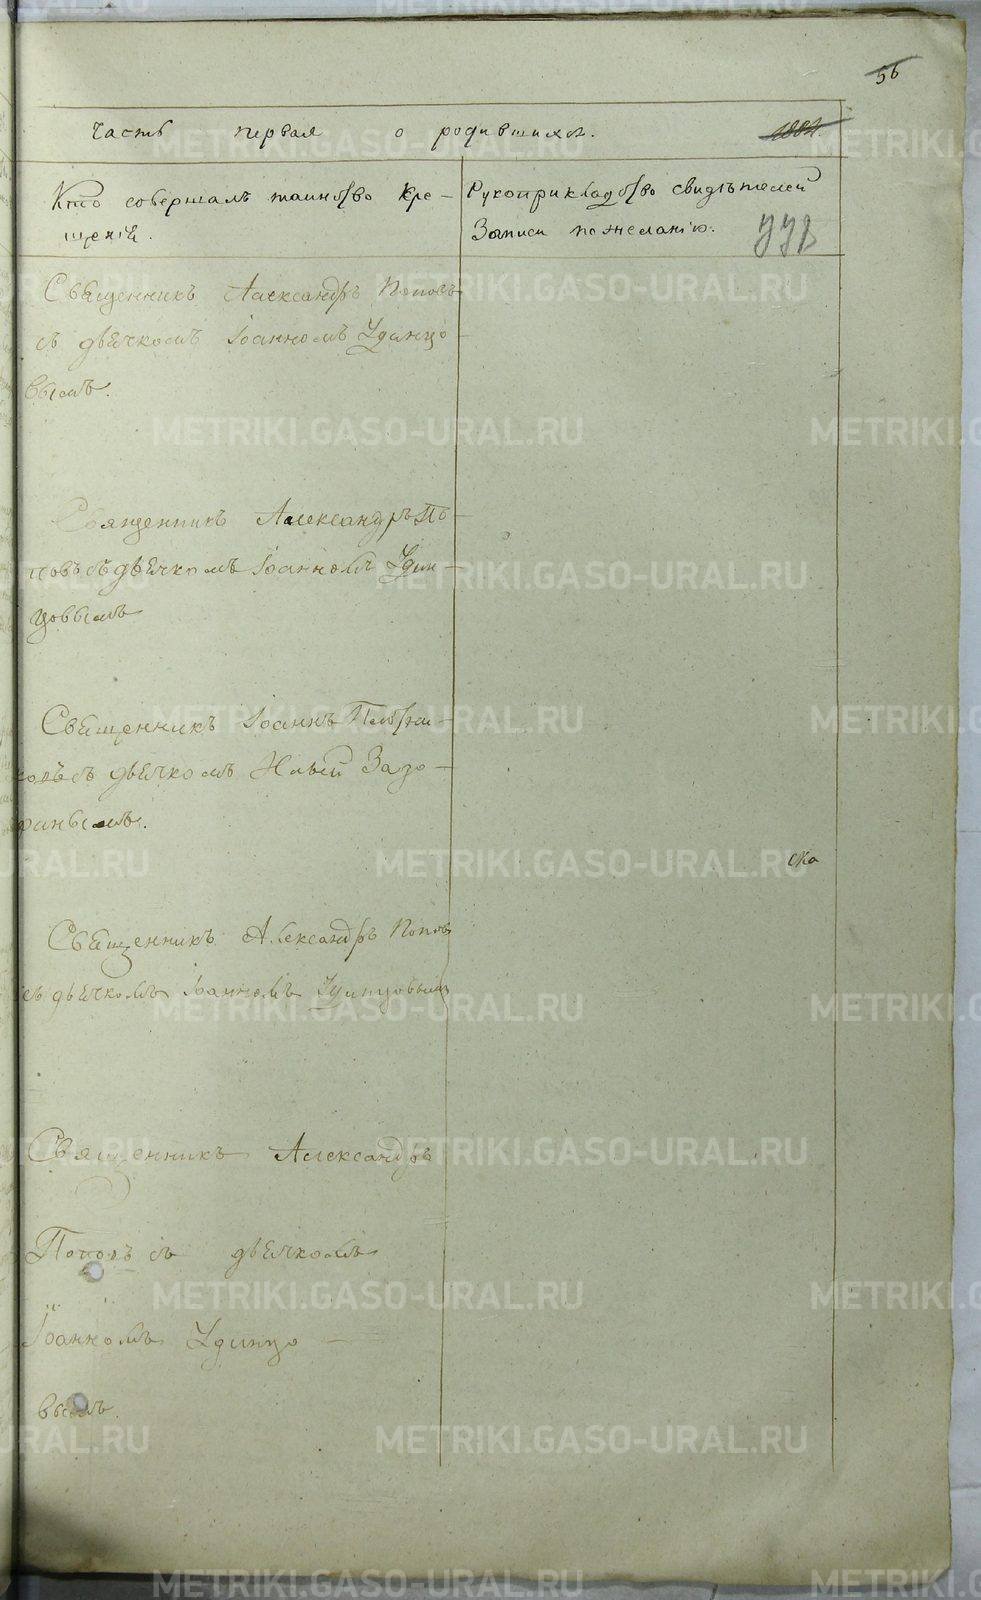 56
Часть первая о родившихся.
Кто совершалъ таинство кре-
щенія.
Рукоприкладство свидѣтелей
записи по желанію.
Священникъ Александръ Поповъ
съ дьячкомъ Іоанномъ Удинцо-
вымъ.
Священникъ Александръ По-
повъ съ дьячкомъ Іоанномъ Удин-
цовымъ
Священникъ Іоаннъ
съ дьячкомъ
Священникъ Александръ Поповъ
съ дьячкомъ Іоанномъ Удинцовымъ
Священникъ Александръ
Поповъ съ дьячкомъ
Іоанномъ Удинцо-
вымъ.
METRIKI.GASO-URAL.RU